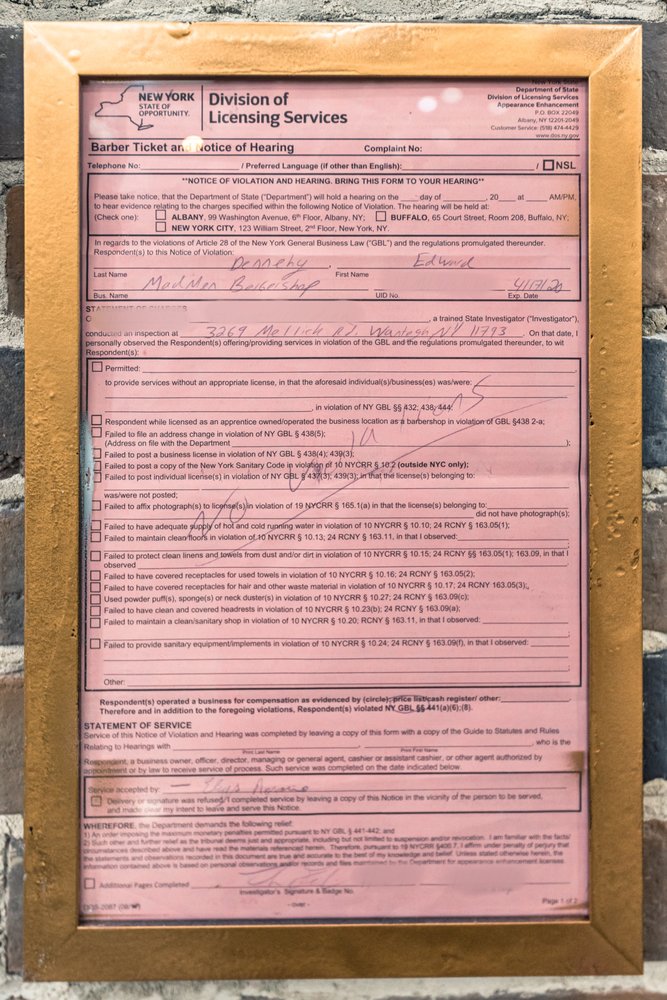 NEW YORK
STATE OF
OPPORTUNITY.
Division of
Licensing Services
New York State
Department of State
Division of Licensing Services
Appearance Enhancement
P.O. BOX 22049
Albany, NY 12201-2049
Customer Service: (518) 474-4429
www.dos.ny.gov
Barber Ticket and Notice of Hearing Complaint No:
Telephone No: / Preferred Language (if other than English): / NSL
**NOTICE OF VIOLATION AND HEARING. BRING THIS FORM TO YOUR HEARING**
Please take notice, that the Department of State ("Department") will hold a hearing on the ___ day of ____, 20__ at ____ AM/PM,
to hear evidence relating to the charges specified within the following Notice of Violation. The hearing will be held at:
(Check one): ALBANY, 99 Washington Avenue, 6th Floor, Albany, NY; BUFFALO, 65 Court Street, Room 208, Buffalo, NY;
NEW YORK CITY, 123 William Street, 2nd Floor, New York, NY.
In regards to the violations of Article 28 of the New York General Business Law ("GBL") and the regulations promulgated thereunder.
Respondent(s) to this Notice of Violation:
Dennehy, Edward
Last Name First Name
MadMen Barbershop 4/17/20
Bus. Name UID No. Exp. Date
STATEMENT OF CHARGES
, a trained State Investigator ("Investigator"),
conducted an inspection at 3269 Rd. Wantagh NY 11793. On that date, I
personally observed the Respondent(s) offering/providing services in violation of the GBL and the regulations promulgated thereunder, to wit
Respondent(s):
Permitted:
to provide services without an appropriate license, in that the aforesaid individual(s)/business(es) was/were:
, in violation of NY GBL §§ 432; 438; 444.
Respondent while licensed as an apprentice owned/operated the business location as a barbershop in violation of GBL §438 2-a;
Failed to file an address change in violation of NY GBL § 438(5);
(Address on file with the Department );
Failed to post a business license in violation of NY GBL § 438(4); 439(3);
Failed to post a copy of the New York Sanitary Code in violation of 10 NYCRR § 10.2 (outside NYC only);
Failed to post individual license(s) in violation of NY GBL § 437(3); 439(3); in that the license(s) belonging to:
No Violations
was/were not posted;
Failed to affix photograph(s) to license(s) in violation of 19 NYCRR § 165.1(a) in that the license(s) belonging to:
did not have photograph(s);
Failed to have adequate supply of hot and cold running water in violation of 10 NYCRR § 10.10; 24 RCNY § 163.05(1);
Failed to maintain clean floors in violation of 10 NYCRR § 10.13; 24 RCNY § 163.11, in that I observed:
Failed to protect clean linens and towels from dust and/or dirt in violation of 10 NYCRR § 10.15; 24 RCNY §§ 163.05(1); 163.09, in that I
observed
Failed to have covered receptacles for used towels in violation of 10 NYCRR § 10.16; 24 RCNY § 163.05(2);
Failed to have covered receptacles for hair and other waste material in violation of 10 NYCRR § 10.17; 24 RCNY § 163.05(3);
Used powder puff(s), sponge(s) or neck duster(s) in violation of 10 NYCRR § 10.27; 24 RCNY § 163.09(c);
Failed to have clean and covered headrests in violation of 10 NYCRR § 10.23(b); 24 RCNY § 163.09(a);
Failed to maintain a clean/sanitary shop in violation of 10 NYCRR § 10.20; RCNY § 163.11, in that I observed:
Failed to provide sanitary equipment/implements in violation of 10 NYCRR § 10.24; 24 RCNY § 163.09(f), in that I observed:
Other:
Respondent(s) operated a business for compensation as evidenced by (circle): price list/cash register/ other:
Therefore and in addition to the foregoing violations, Respondent(s) violated NY GBL §§ 441(a)(6);(8).
STATEMENT OF SERVICE
Service of this Notice of Violation and Hearing was completed by leaving a copy of this form with a copy of the Guide to Statutes and Rules
Relating to Hearings with , , who is the
Print Last Name Print First Name
Respondent, a business owner, officer, director, managing or general agent, cashier or assistant cashier, or other agent authorized by
appointment or by law to receive service of process. Such service was completed on the date indicated below.
Service accepted by:
Delivery or signature was refused/I completed service by leaving a copy of this Notice in the vicinity of the person to be served,
and made clear my intent to leave and serve this Notice.
WHEREFORE, the Department demands the following relief:
1) An order imposing the maximum monetary penalties permitted pursuant to NY GBL § 441-442; and
2) Such other and further relief as the tribunal deems just and appropriate, including but not limited to suspension and/or revocation. I am familiar with the facts/
circumstances described above and have read the materials referenced herein. Therefore, pursuant to 19 NYCRR §400.7, I affirm under penalty of perjury that
the statements and observations recorded in this document are true and accurate to the best of my knowledge and belief. Unless stated otherwise herein, the
information contained above is based on personal observations and/or records and files maintained by the Department for appearance enhancement licenses.
Additional Pages Completed
Investigator's Signature & Badge No.
-over-
Page 1 of 2